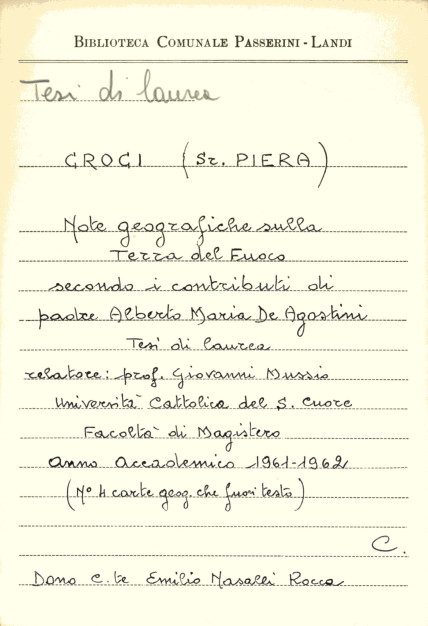 BIBLIOTECA COMUNALE PASSERINI - LANDI
Tesi di laurea
GROGI (Sr. PIERA)
Note geografiche sulla
Terra del Fuoco
secondo i contributi di
padre Alberto Maria De Agostini
Tesi di laurea
relatore: prof. Giovanni Mussio
Università Cattolica del S. Cuore
Facoltà di Magistero
anno accademico 1961-1962
(N° 4 carte geog. che fuori testo)
C.
Dono C.te Emilio Nasalli Rocca